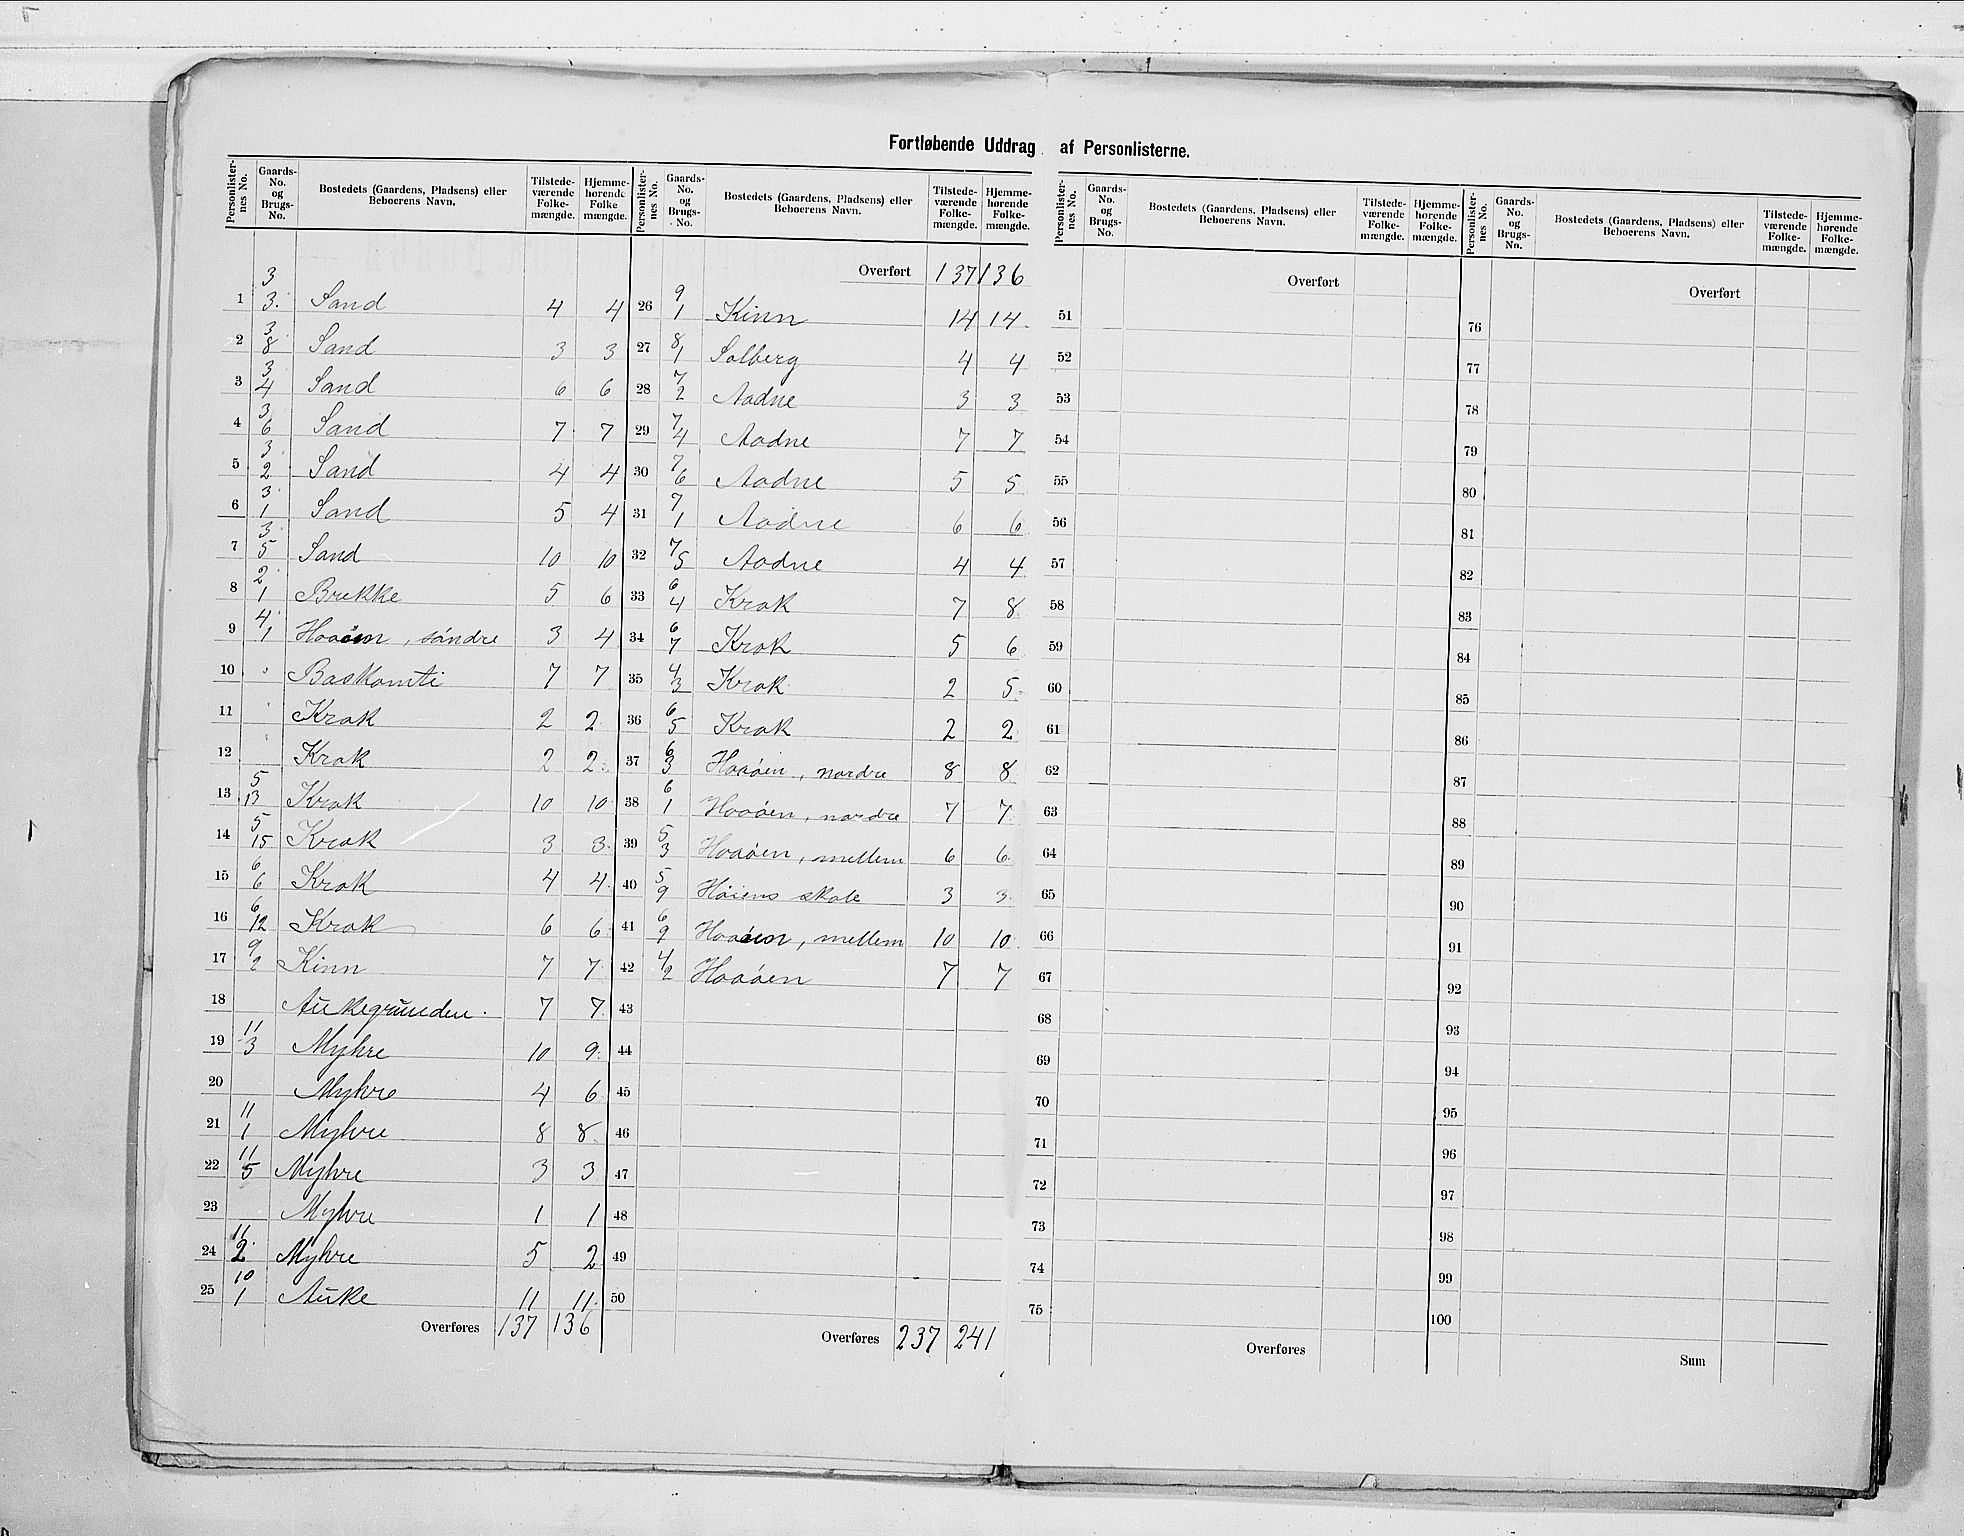 Fortløbende Uddrag af Personlisterne.
Personlisternes No. | Gaards-No. og Brugs-No. | Bostedets (Gaardens, Pladsens) eller Beboerens Navn. | Tilstedeværende Folkemængde. | Hjemmehørende Folkemængde.
1 | 3/3 | Sand | 4 | 4
2 | 3/8 | Sand | 3 | 3
3 | 3/4 | Sand | 6 | 6
4 | 3/6 | Sand | 7 | 7
5 | 3/2 | Sand | 4 | 4
6 | 3/1 | Sand | 5 | 4
7 | 3/5 | Sand | 10 | 10
8 | 2/1 | Brekke | 5 | 6
9 | 4/1 | Haaøen, söndre | 3 | 4
10 | Baskamti | 7 | 7
11 | Krok | 2 | 2
12 | Krok | 2 | 2
13 | 5/13 | Krok | 10 | 10
14 | 5/15 | Krok | 3 | 3
15 | 6/6 | Krok | 4 | 4
16 | 6/12 | Krok | 6 | 6
17 | 9/2 | Kinn | 7 | 7
18 | Aukegrunden | 7 | 7
19 | 11/3 | Myhre | 10 | 9
20 | Myhre | 4 | 6
21 | 11/1 | Myhre | 8 | 8
22 | 11/5 | Myhre | 3 | 3
23 | Myhre | 1 | 1
24 | 11/2 | Myhre | 5 | 2
25 | 10/1 | Auke | 11 | 11
Overføres 137 136
Personlisternes No. | Gaards-No. og Brugs-No. | Bostedets (Gaardens, Pladsens) eller Beboerens Navn. | Tilstedeværende Folkemængde. | Hjemmehørende Folkemængde.
Overført 137 136
26 | 9/1 | Kinn | 14 | 14
27 | 8/1 | Solberg | 4 | 4
28 | 7/2 | Aadne | 3 | 3
29 | 7/4 | Aadne | 7 | 7
30 | 7/6 | Aadne | 5 | 5
31 | 7/1 | Aadne | 6 | 6
32 | 7/5 | Aadne | 4 | 4
33 | 6/4 | Krok | 7 | 8
34 | 6/7 | Krok | 5 | 6
35 | 4/3 | Krok | 2 | 5
36 | 6/5 | Krok | 2 | 2
37 | 6/3 | Haaøen, nordre | 8 | 8
38 | 6/1 | Haaøen, nordre | 7 | 7
39 | 5/3 | Haaøen, mellem | 6 | 6
40 | 5/9 | Høiens skole | 3 | 3
41 | 6/9 | Haaøen, mellem | 10 | 10
42 | 4/2 | Haaøen | 7 | 7
43
44
45
46
47
48
49
50
Overføres 237 241
Personlisternes No. | Gaards-No. og Brugs-No. | Bostedets (Gaardens, Pladsens) eller Beboerens Navn. | Tilstedeværende Folkemængde. | Hjemmehørende Folkemængde.
Overført
51
52
53
54
55
56
57
58
59
60
61
62
63
64
65
66
67
68
69
70
71
72
73
74
75
Overføres
Personlisternes No. | Gaards-No. og Brugs-No. | Bostedets (Gaardens, Pladsens) eller Beboerens Navn. | Tilstedeværende Folkemængde. | Hjemmehørende Folkemængde.
Overført
76
77
78
79
80
81
82
83
84
85
86
87
88
89
90
91
92
93
94
95
96
97
98
99
100
Sum